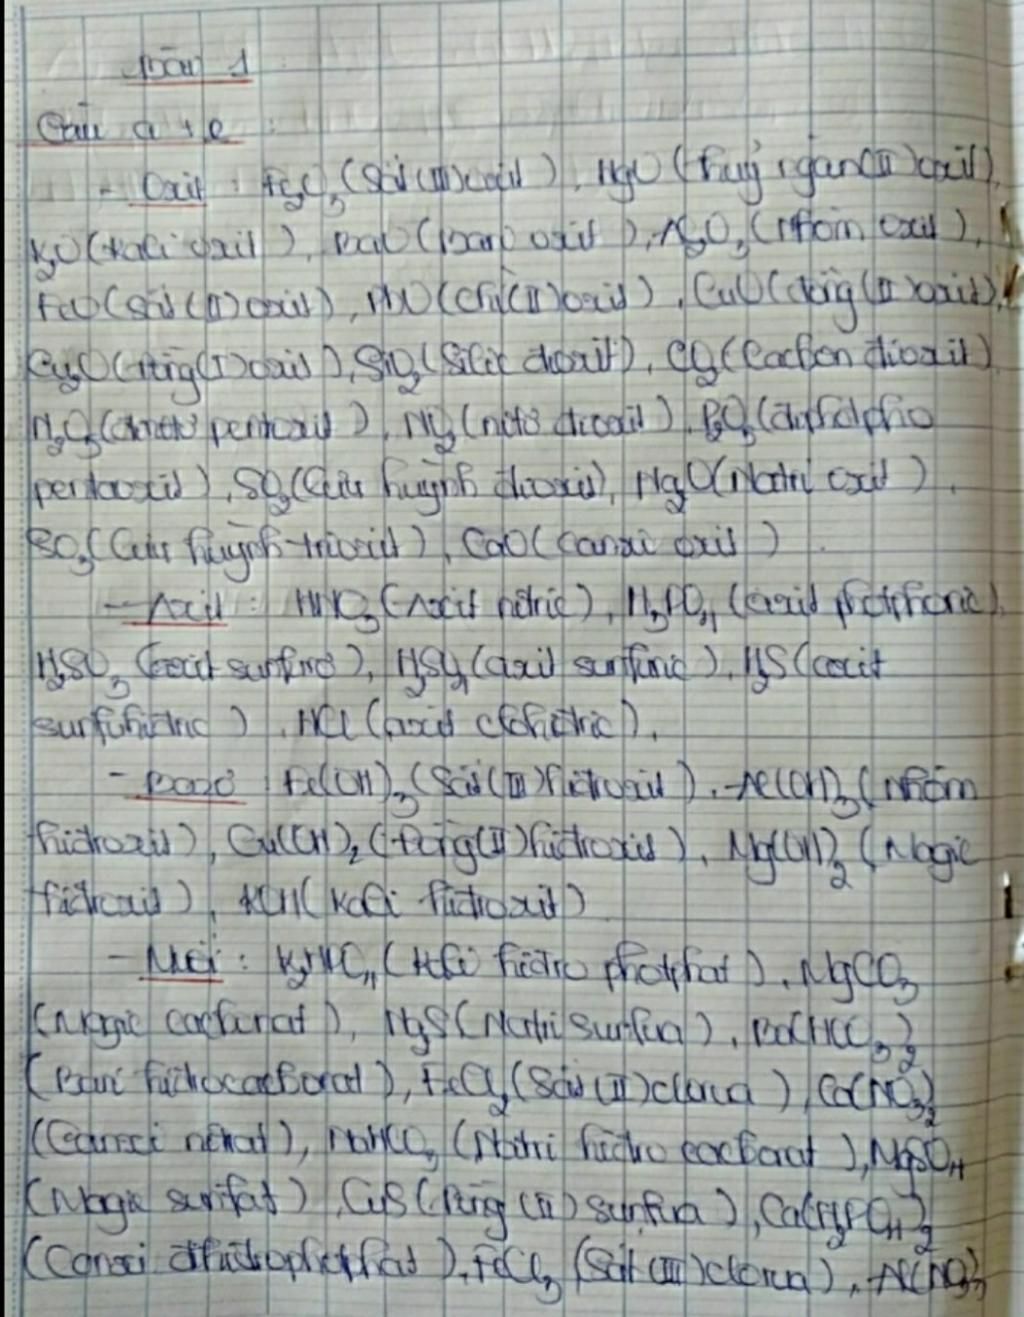 Bài 1
Câu a + e :
- Oxit : Fe2O3 (Sắt(III)oxit), HgO (thuỷ ngân(II)oxit),
K2O (Kali oxit), BaO (Bari oxit), Al2O3 (Nhôm oxit),
FeO (Sắt (II) oxit), PbO (Chì(II) oxit), CuO (đồng(II) oxit),
Cu2O (đồng(I) oxit), SiO2 (Silic đioxit), CO2 (Cacbon đioxit)
N2O5 (đinitơ pentoxit), NO2 (nitơ đioxit), P2O5 (điphotpho
pentaoxit), SO2 (Lưu huỳnh đioxit), Na2O (Natri oxit),
SO3 (Lưu huỳnh trioxit), CaO (canxi oxit)
- Axit : HNO3 (Axit nitric), H3PO4 (axit photphoric),
H2SO3 (axit sunfurơ), H2SO4 (axit sunfuric), H2S (axit
sunfuhiđric), HCl (axit clohiđric),
- Bazơ : Fe(OH)3 (Sắt(III) hiđroxit), Al(OH)3 (Nhôm
hiđroxit), Cu(OH)2 (đồng(II) hiđroxit), Mg(OH)2 (Magie
hiđroxit), KOH (Kali hiđroxit)
- Muối : K2HPO4 (Kali hiđro photphat), MgCO3
(Magie cacbonat), Na2S (Natri sunfua), Ba(HCO3)2
(Bari hiđrocacbonat), FeCl2 (Sắt (II) clorua), Ca(NO3)2
(Canxi nitrat), NaHCO3 (Natri hiđro cacbonat), MgSO4
(Magie sunfat), CuS (Đồng (II) sunfua), Ca(H2PO4)2
(Canxi đihiđrophotphat), FeCl3 (Sắt (III) clorua), Al(NO3)3